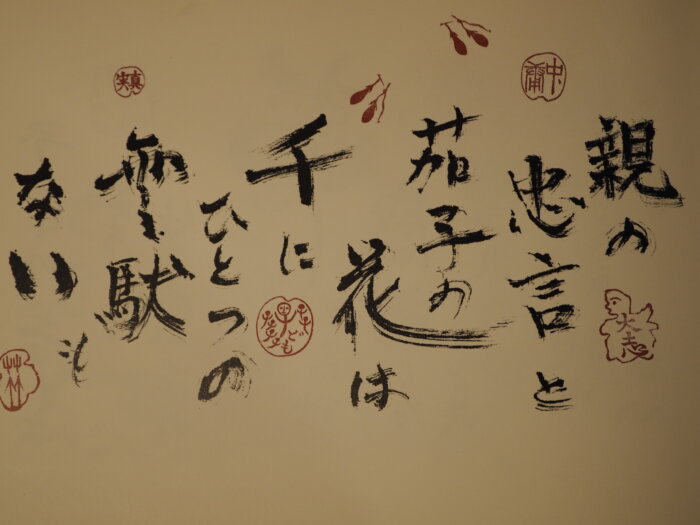 親の
忠言と
茄子の
花は
千に
ひとつの
無駄
も
ない
大志
真実